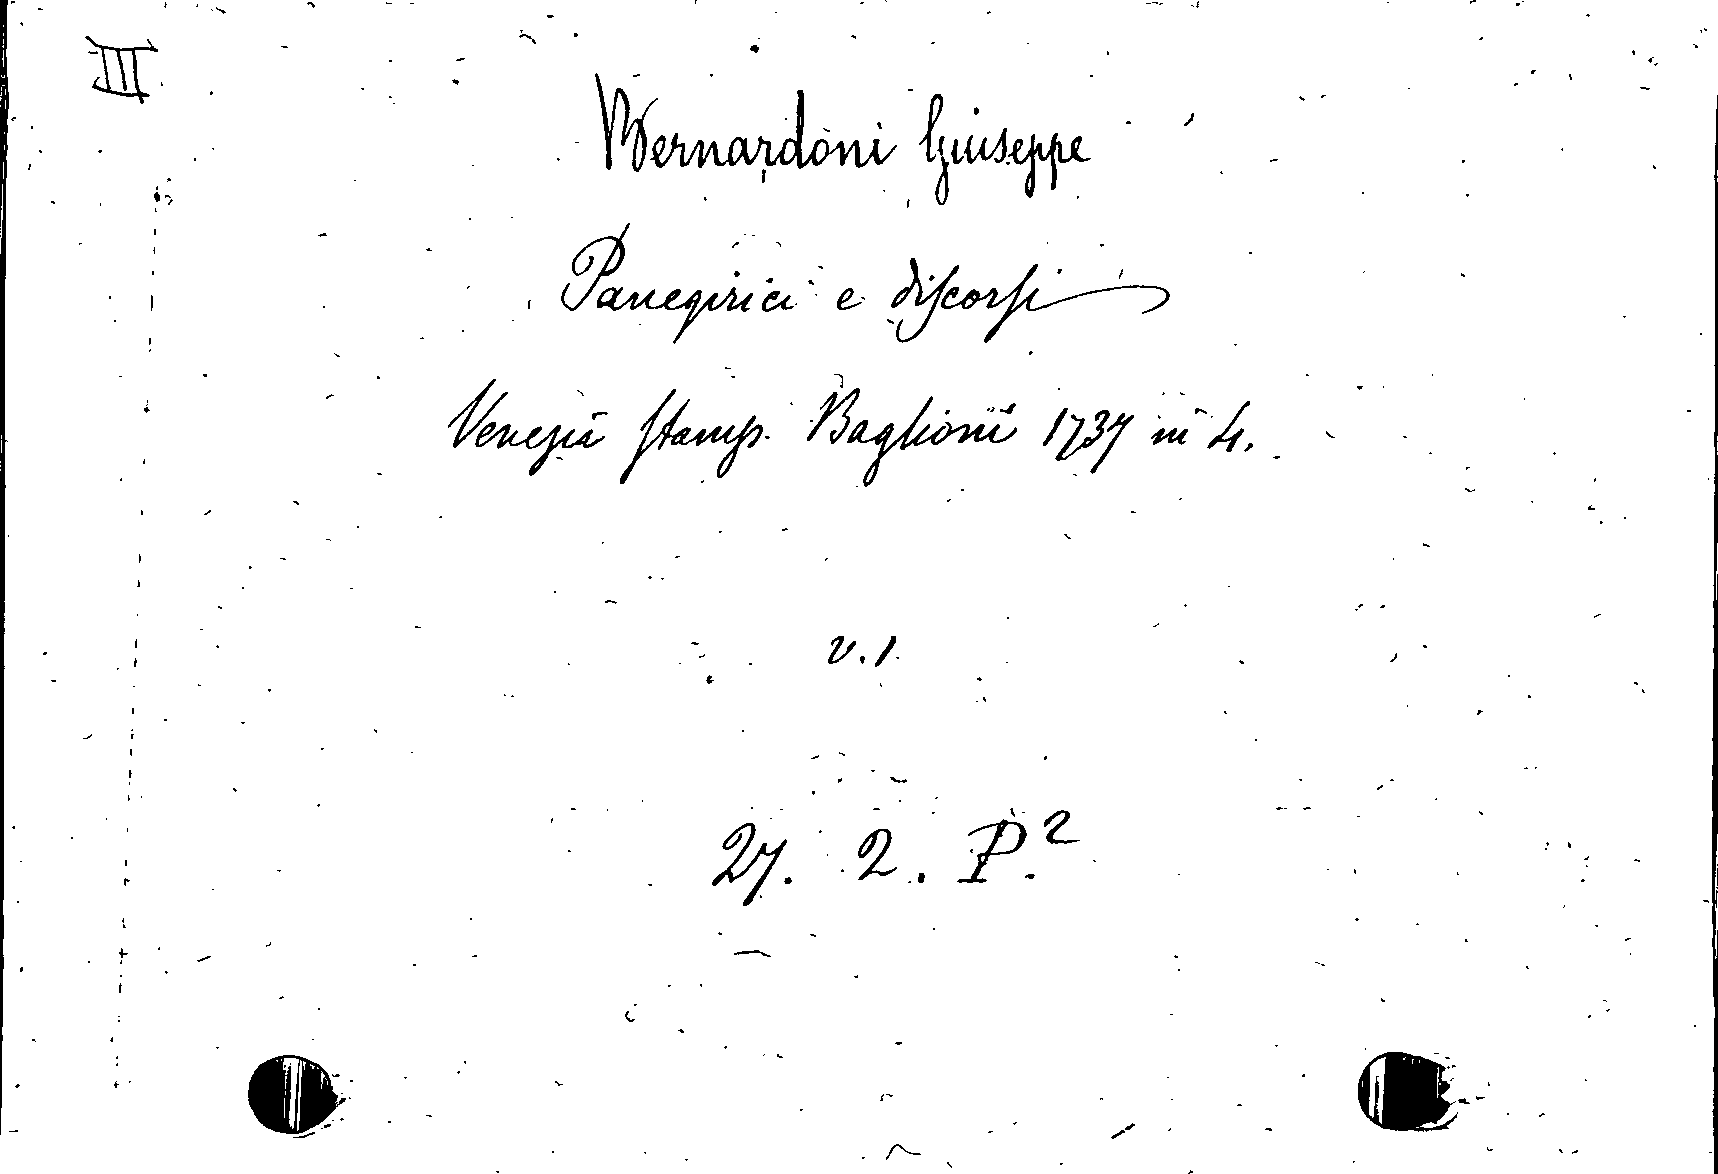 III
Bernardoni Giuseppe
Panegirici e discorsi
Venezia stamp. Baglioni 1737 in 4.
v. 1
27. 2. P.²